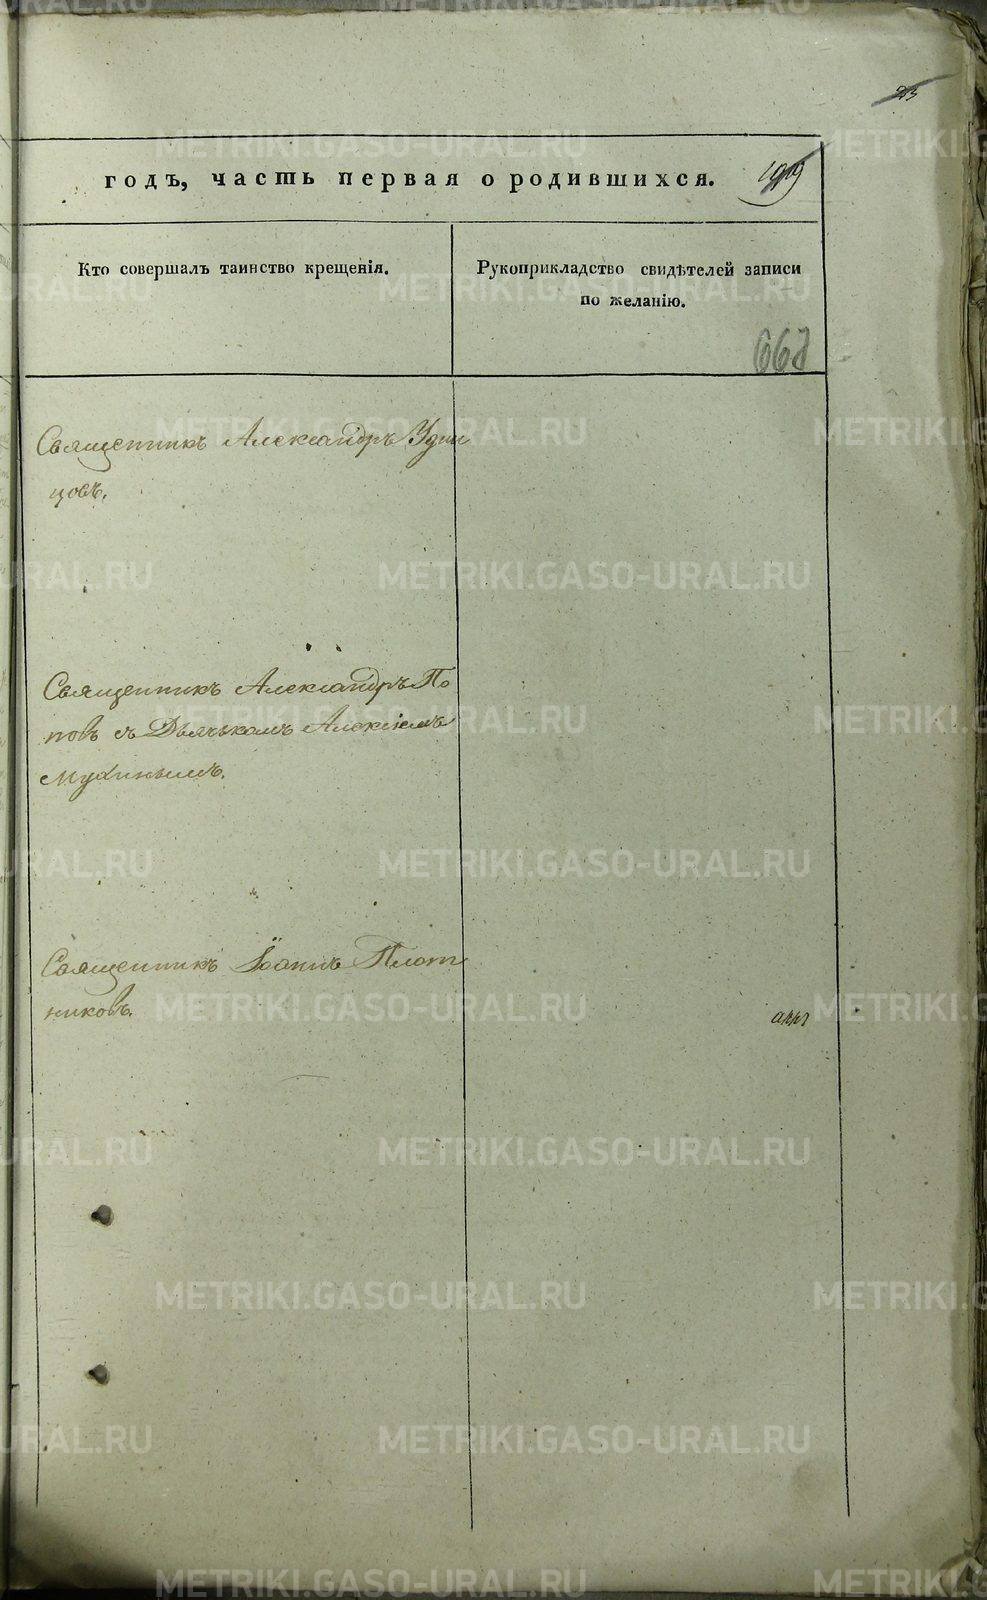 годъ, часть первая о родившихся.
Кто совершалъ таинство крещенія.
Рукоприкладство свидѣтелей записи
по желанію.
668
Священникъ Александръ Удин
цовъ.
Священникъ Александръ По
повъ съ Дьячькомъ Алексіемъ
Мухинымъ.
Священникъ Іоаннъ Плот
никовъ.
METRIKI.GASO-URAL.RU